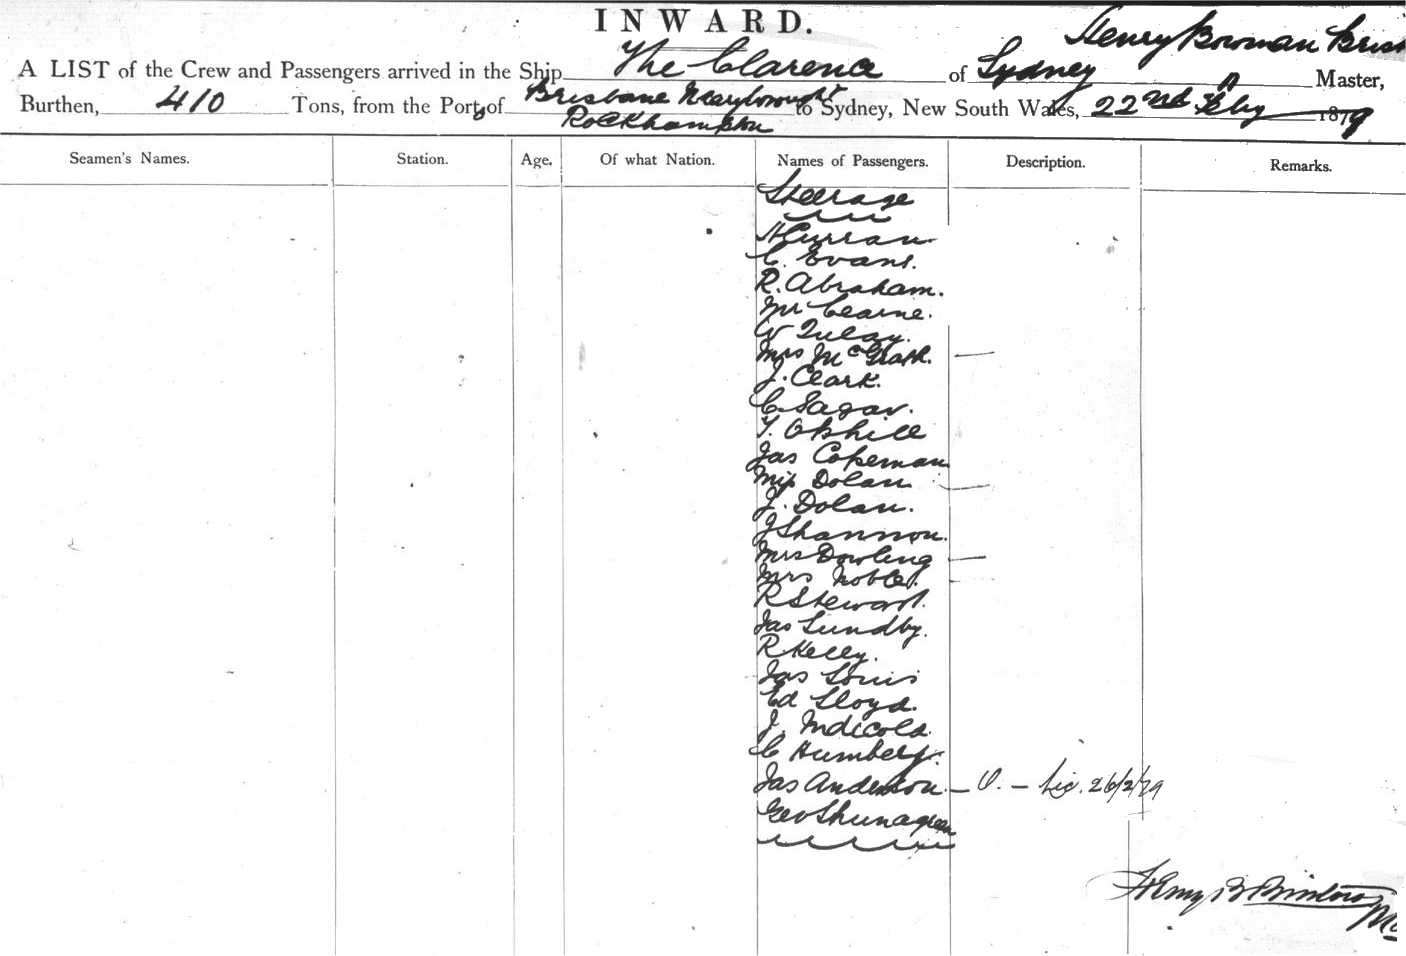 INWARD.
Henry Bowman
A LIST of the Crew and Passengers arrived in the Ship The Clarence of Sydney Master,
Burthen, 410 Tons, from the Ports of Brisbane Maryborough & Rockhampton to Sydney, New South Wales, 22nd Feby 1879
Seamen's Names. Station. Age. Of what Nation. Names of Passengers. Description. Remarks.
Steerage
H Curran
C. Evans.
R. Abraham.
Mr Cearne.
W
Mrs McGrath.
J. Clark.
C. Sagar.
T. Ophill
Jas Copeman
Miss Dolan
J. Dolan.
J Shannon.
Mrs Dowling
Mrs Noble.
R Stewart.
Jas Lundby.
R Kelly.
Jas Louis
Ed Lloyd.
J.
C Humbley.
Jas Anderson. 26/2/79
Geo
Henry B